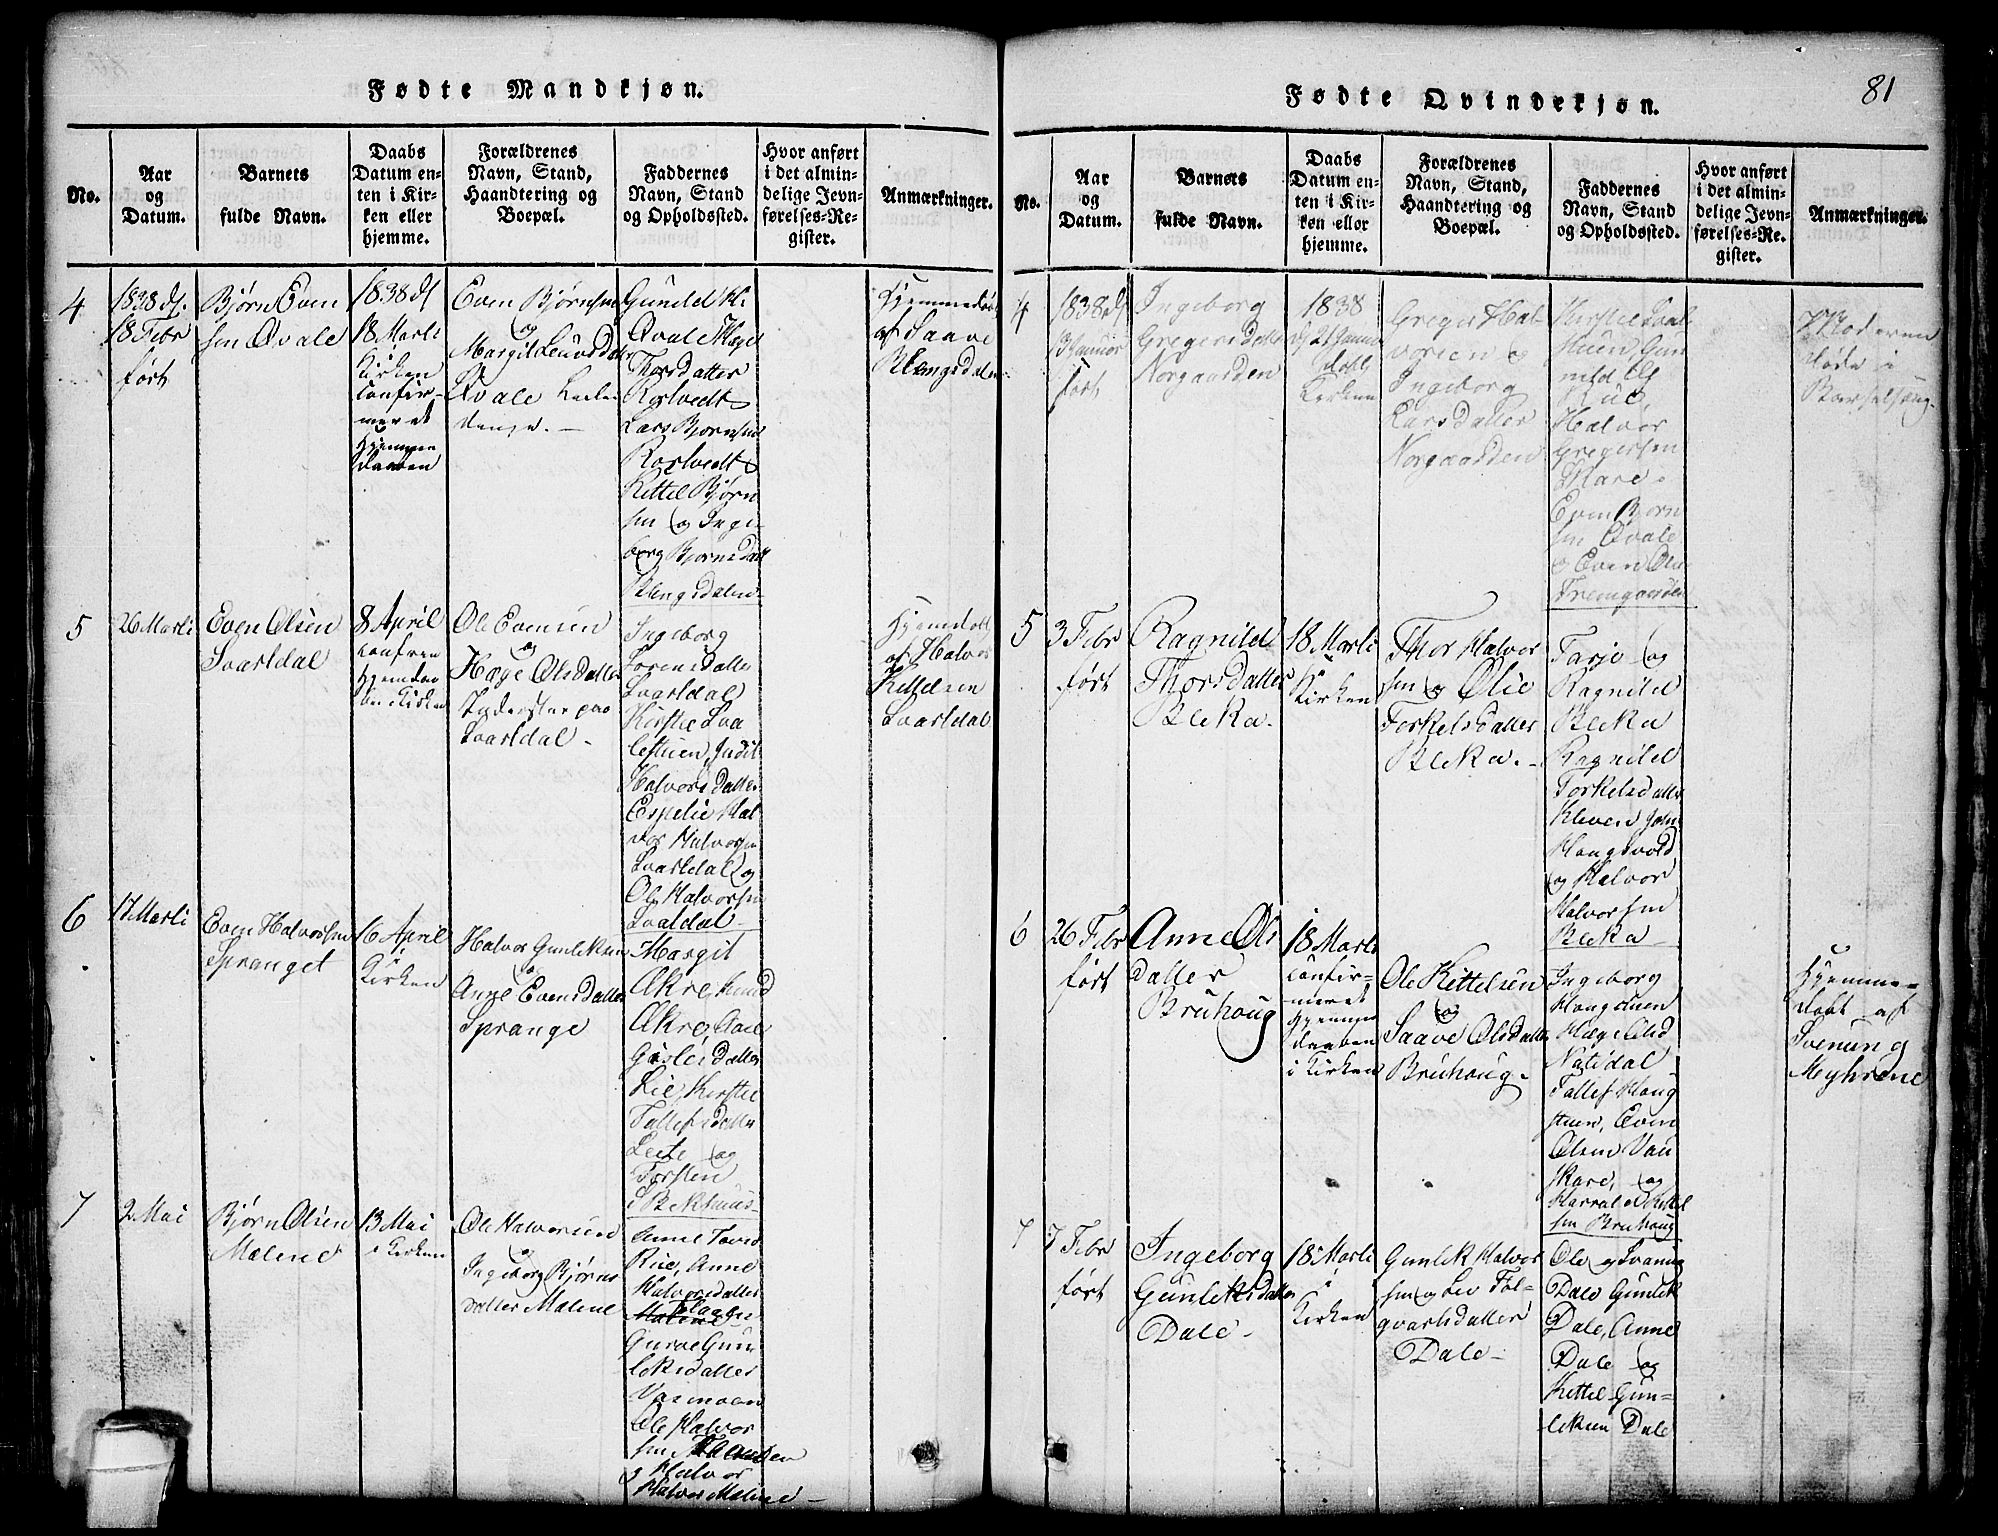 Fødte Mandkjøn.
No.
Aar
og
Datum.
Barnets
fulde Navn.
Daabs
Datum en-
ten i Kir-
ken eller
hjemme.
Forældrenes
Navn, Stand,
Haandtering og
Boepæl.
Faddernes
Navn, Stand
og Opholdssted.
Hvor anført
i det almin-
delige Jevn-
førelses-Re-
gister.
Anmærkninger.
4
1838 d.
18 Febr
ført
Bjørn Even
sen Qvale
1838 d
18 Marti
Kirken
confir-
meret
Hjemme
daaben
Even Bjørnsen
og
Margit
Qvale
Gunild
Qvale
Thorsdatter
Roslvedt
Lars Bjørnsen
Roslvedt
Kittel Bjørn
sen og Inge
borg Bjørnsdatt
Blengsdalen
af Saave
Blengsdalen
5
26 Marti
Even Olsen
Svartdal
8 April
i Kirken
Ole Evensen
og
Hæge Olsdatter
Inderster paa
Svartdal -
Ingeborg
Svartdal
Kirstie Sva
lestuen, Judit
Halvorsdatter
Espelie Hal
vor Halvorsen
Svartdal og
Ole Halvorsen
Svartdal
af Halvor
Kittelsen
Svartdal
6
17 Marti
Even Halvorsen
Spranget
16 April
i
Kirken
Halvor Gunleksen
og
Anne Evensdatter
Sprange
Margit
Akre, Knud
Akre, Aase
Lie, Kirstie
Tallefsdatter
Leite og
Torsten
i Bekhuus
7
2 Mai
Bjørn Olsen
Malene
13 Mai
i Kirken
Ole Halvorsen
og
Ingeborg Bjørns
datter Malene
Anne
Rue, Anne
Halvorsdatter
Gurve Gun
leksdatter
Ole Halvor
sen
og Halvor
Halvor Malene -
Fødte Qvindekjøn.
81
No.
Aar
og
Datum.
Barnets
fulde Navn.
Daabs
Datum en-
ten i Kir-
ken eller
hjemme.
Forældrenes
Navn, Stand,
Haandtering og
Boepæl.
Faddernes
Navn, Stand
og Opholdssted.
Hvor anført
i det almin-
delige Jevn-
førelses-Re-
gister.
Anmærkninger.
4
1838 d
13 Januar
ført
Ingeborg
Gregersdatter
Norgaarden
1838
d 21 Januar
Kirken
Greger Hal
vorsen og
Ingeborg
Larsdatter
Norgaarden
Kirstie Sval
stuen, Gun
nild
Rue
Halvor
Gregersen
Skare
Even Bjørn
sen Qvale
og Even Ols
Fremgaarden
Moderen
døde i
Barselseng.
5
3 Febr
ført
Ragnild
Thorsdatter
Bleka
18 Marti
i
Kirken
Thor Halvor
sen og Olie
Torkelsdatter
Bleka. -
Tarje og
Ragnild
Bleka
Ragnild
Torkelsdatter
Kleven
Haugsvold
og Halvor
Halvorsen
Bleka -
6
26 Febr
ført
Anne Ols
datter
Bruhaug
18 Marti
confir-
meret
Hjemme
daaben
i Kirken
Ole Kittelsen
og
Saave Olsdatter
Bruhaug -
Ingeborg
Haugstuen
Hæge
Natsdal
Tallef Haug
stuen, Even
Olsen Vaa
skare, og
Harrald Kittel
sen Bruhaug
Hjemme-
døbt af
Svenung
Myhrene
7
7 Febr
ført
Ingeborg
Gunleksdatter
Dale -
18 Marti
i
Kirken
Gunlek Halvor
sen og Liv Fol-
qvarsdatter
Dale -
Ole og Svanug
Dale Gunlek
Dale, Anne
Dale og
Kittel Gun-
leksen Dale